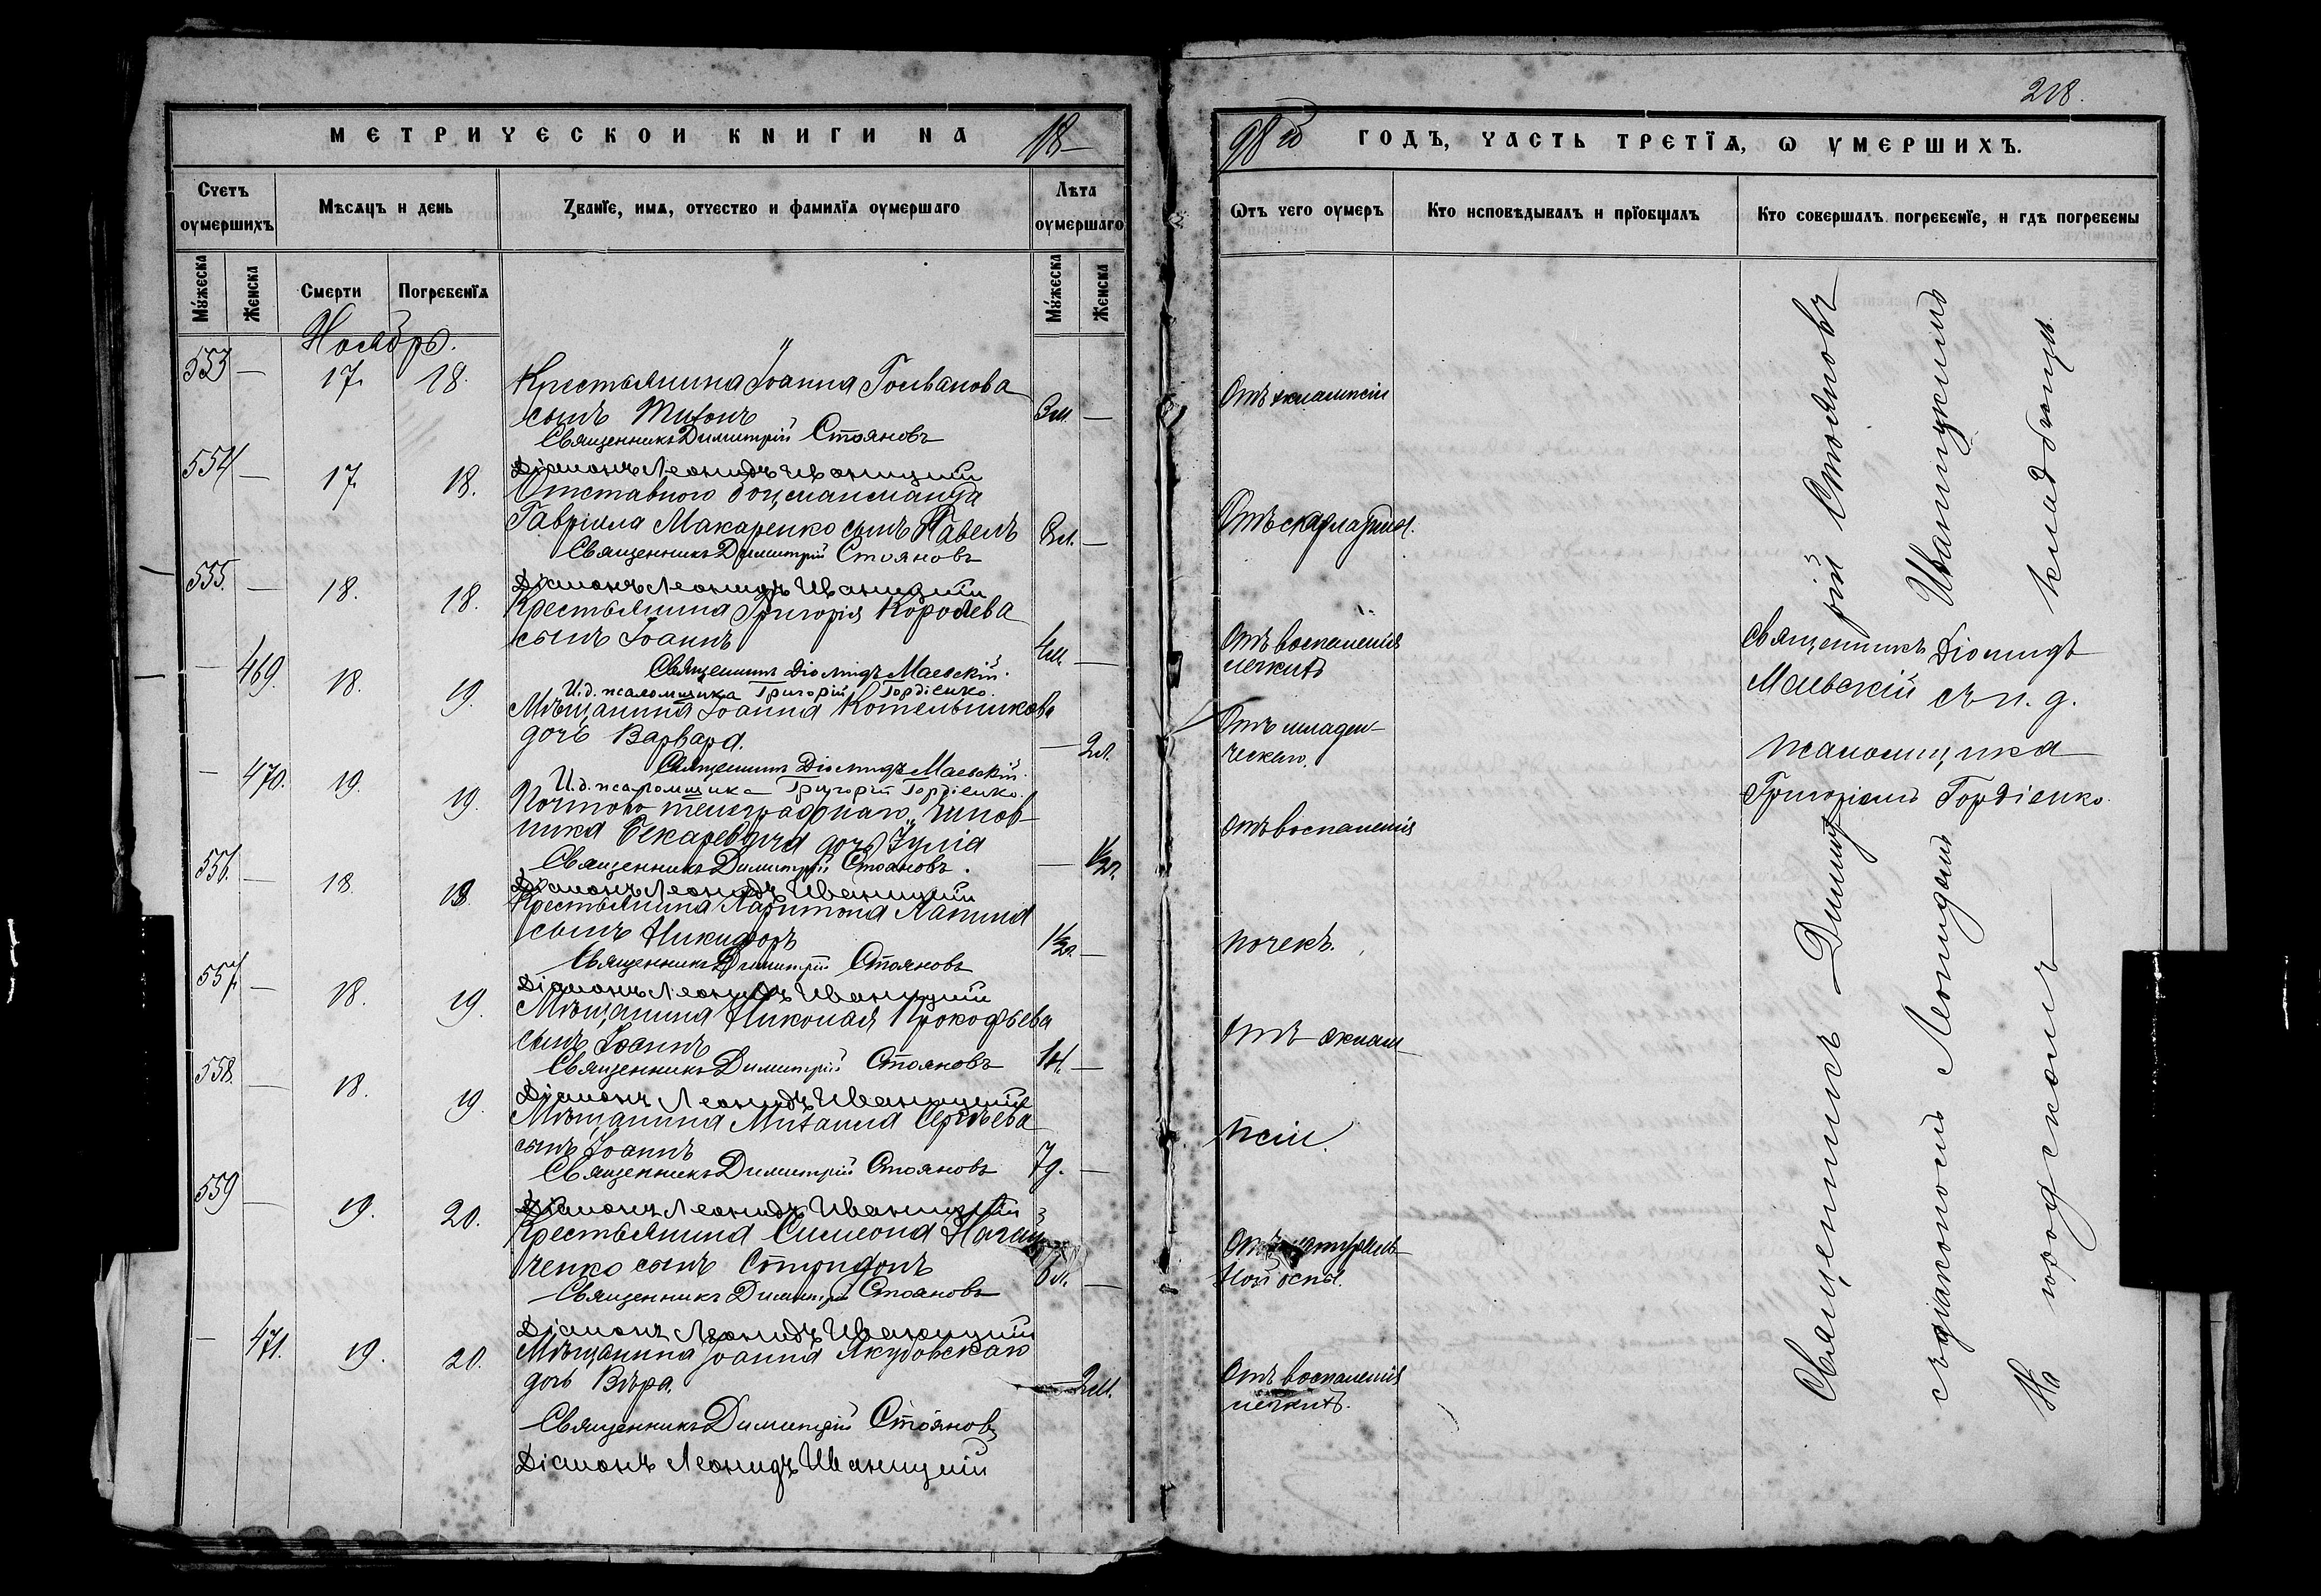 218.
МЕТРИЧЕСКОИ КНИГИ НА 18-
98й ГОДЪ, ЧАСТЬ ТРЕТІЯ, Ѡ УМЕРШИХЪ.
Счетъ оумершихъ
Мѣсяцъ и день
Званіе, имя, отчество и фамиліа оумершаго
Лѣта оумершаго
Ѿтъ чего оумеръ
Кто исповѣдывалъ и пріобщалъ
Кто совершалъ погребеніе, и гдѣ погребены
Мужеска
Женска
Смерти
Погребеніа
Мужеска
Женска
Ноябрь.
553 — 17. 18. Крестьянина Іоанна
сынъ Тихонъ 3м. — Отъ эклампсіи
Священникъ Димитрій Стояновъ
Діаконъ Леонидъ Иваницкій
554 — 17. 18. Отставного боцманмана
Гавріила Макаренко сынъ Павелъ — Отъ скарлатины.
Священникъ Димитрій Стояновъ
Діаконъ Леонидъ Иваницкій
555. — 18. 18. Крестьянина Григорія Королева
сынъ Іоаннъ 4м. — Отъ воспаленія
легкихъ
Священникъ Діомидъ Маевскій.
И.д. псаломщика Григорій Гордіенко.
— 469. 18. 19. Мѣщанина Іоанна Котельникова
дочь Варвара. — 2л. Отъ младен-
ческаго.
Священникъ Діомидъ Маевскій.
И.д. псаломщика Григорій Гордіенко.
— 470. 19. 19. Почтово телеграфнаго чинов-
ника Бекаревича дочь Іулія — 1½л. Отъ воспаленія
почекъ.
Священникъ Димитрій Стояновъ.
Діаконъ Леонидъ Иваницкій
556. — 18. 19. Крестьянина Харитона Лапина
сынъ Никифоръ 1½л. —
Священникъ Димитрій Стояновъ
Діаконъ Леонидъ Иваницкій
557. — 18. 19. Мѣщанина Николая Прокофьева
сынъ Іоаннъ — Отъ эклам-
псіи.
Священникъ Димитрій Стояновъ
Діаконъ Леонидъ Иваницкій
558. — 18. 19. Мѣщанина Михаила Сергѣева
сынъ Іоаннъ 7д. —
Священникъ Димитрій Стояновъ
Діаконъ Леонидъ Иваницкій
559 — 19. 20. Крестьянина Симеона
ченко сынъ Спиридонъ — Отъ натураль-
ной оспы.
Священникъ Димитрій Стояновъ
Діаконъ Леонидъ Иваницкій
— 471. 19. 20. Мѣщанина Іоанна Якубовскаго
дочь Вѣра. — 2м. Отъ воспаленія
легкихъ.
Священникъ Димитрій Стояновъ
Діаконъ Леонидъ Иваницкій
Священникъ Діомидъ
Маевскій съ и. д.
псаломщика
Григоріемъ Гордіенко.
Священникъ Димитрій Стояновъ
съ діакономъ Леонидомъ Иваницкимъ
На городскомъ кладбищѣ.